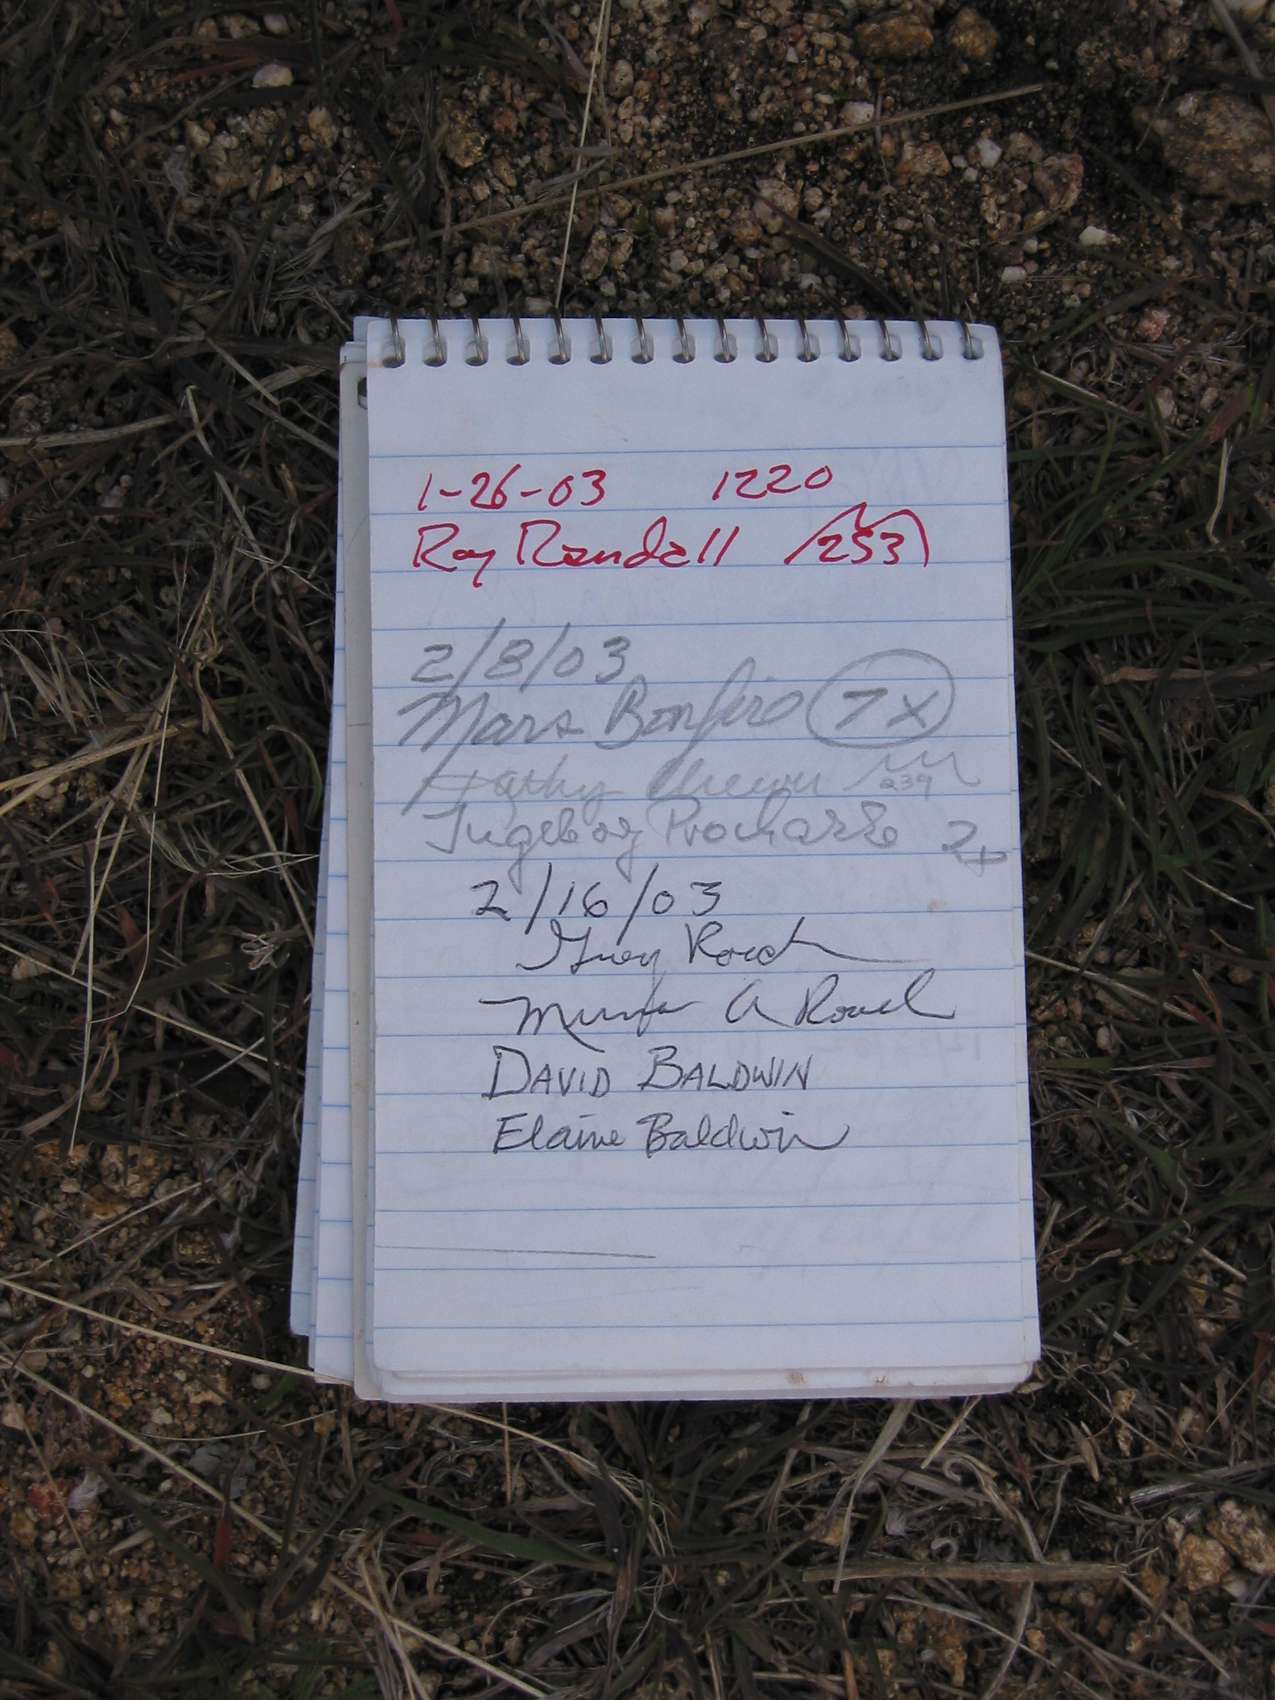 1-26-03 1220
Ray Randall 253
2/8/03
Mars Bonfire 7X
Kathy 239
Ingeborg Prochazka 2x
2/16/03
Greg Roach
A Roach
DAVID BALDWIN
Elaine Baldwin